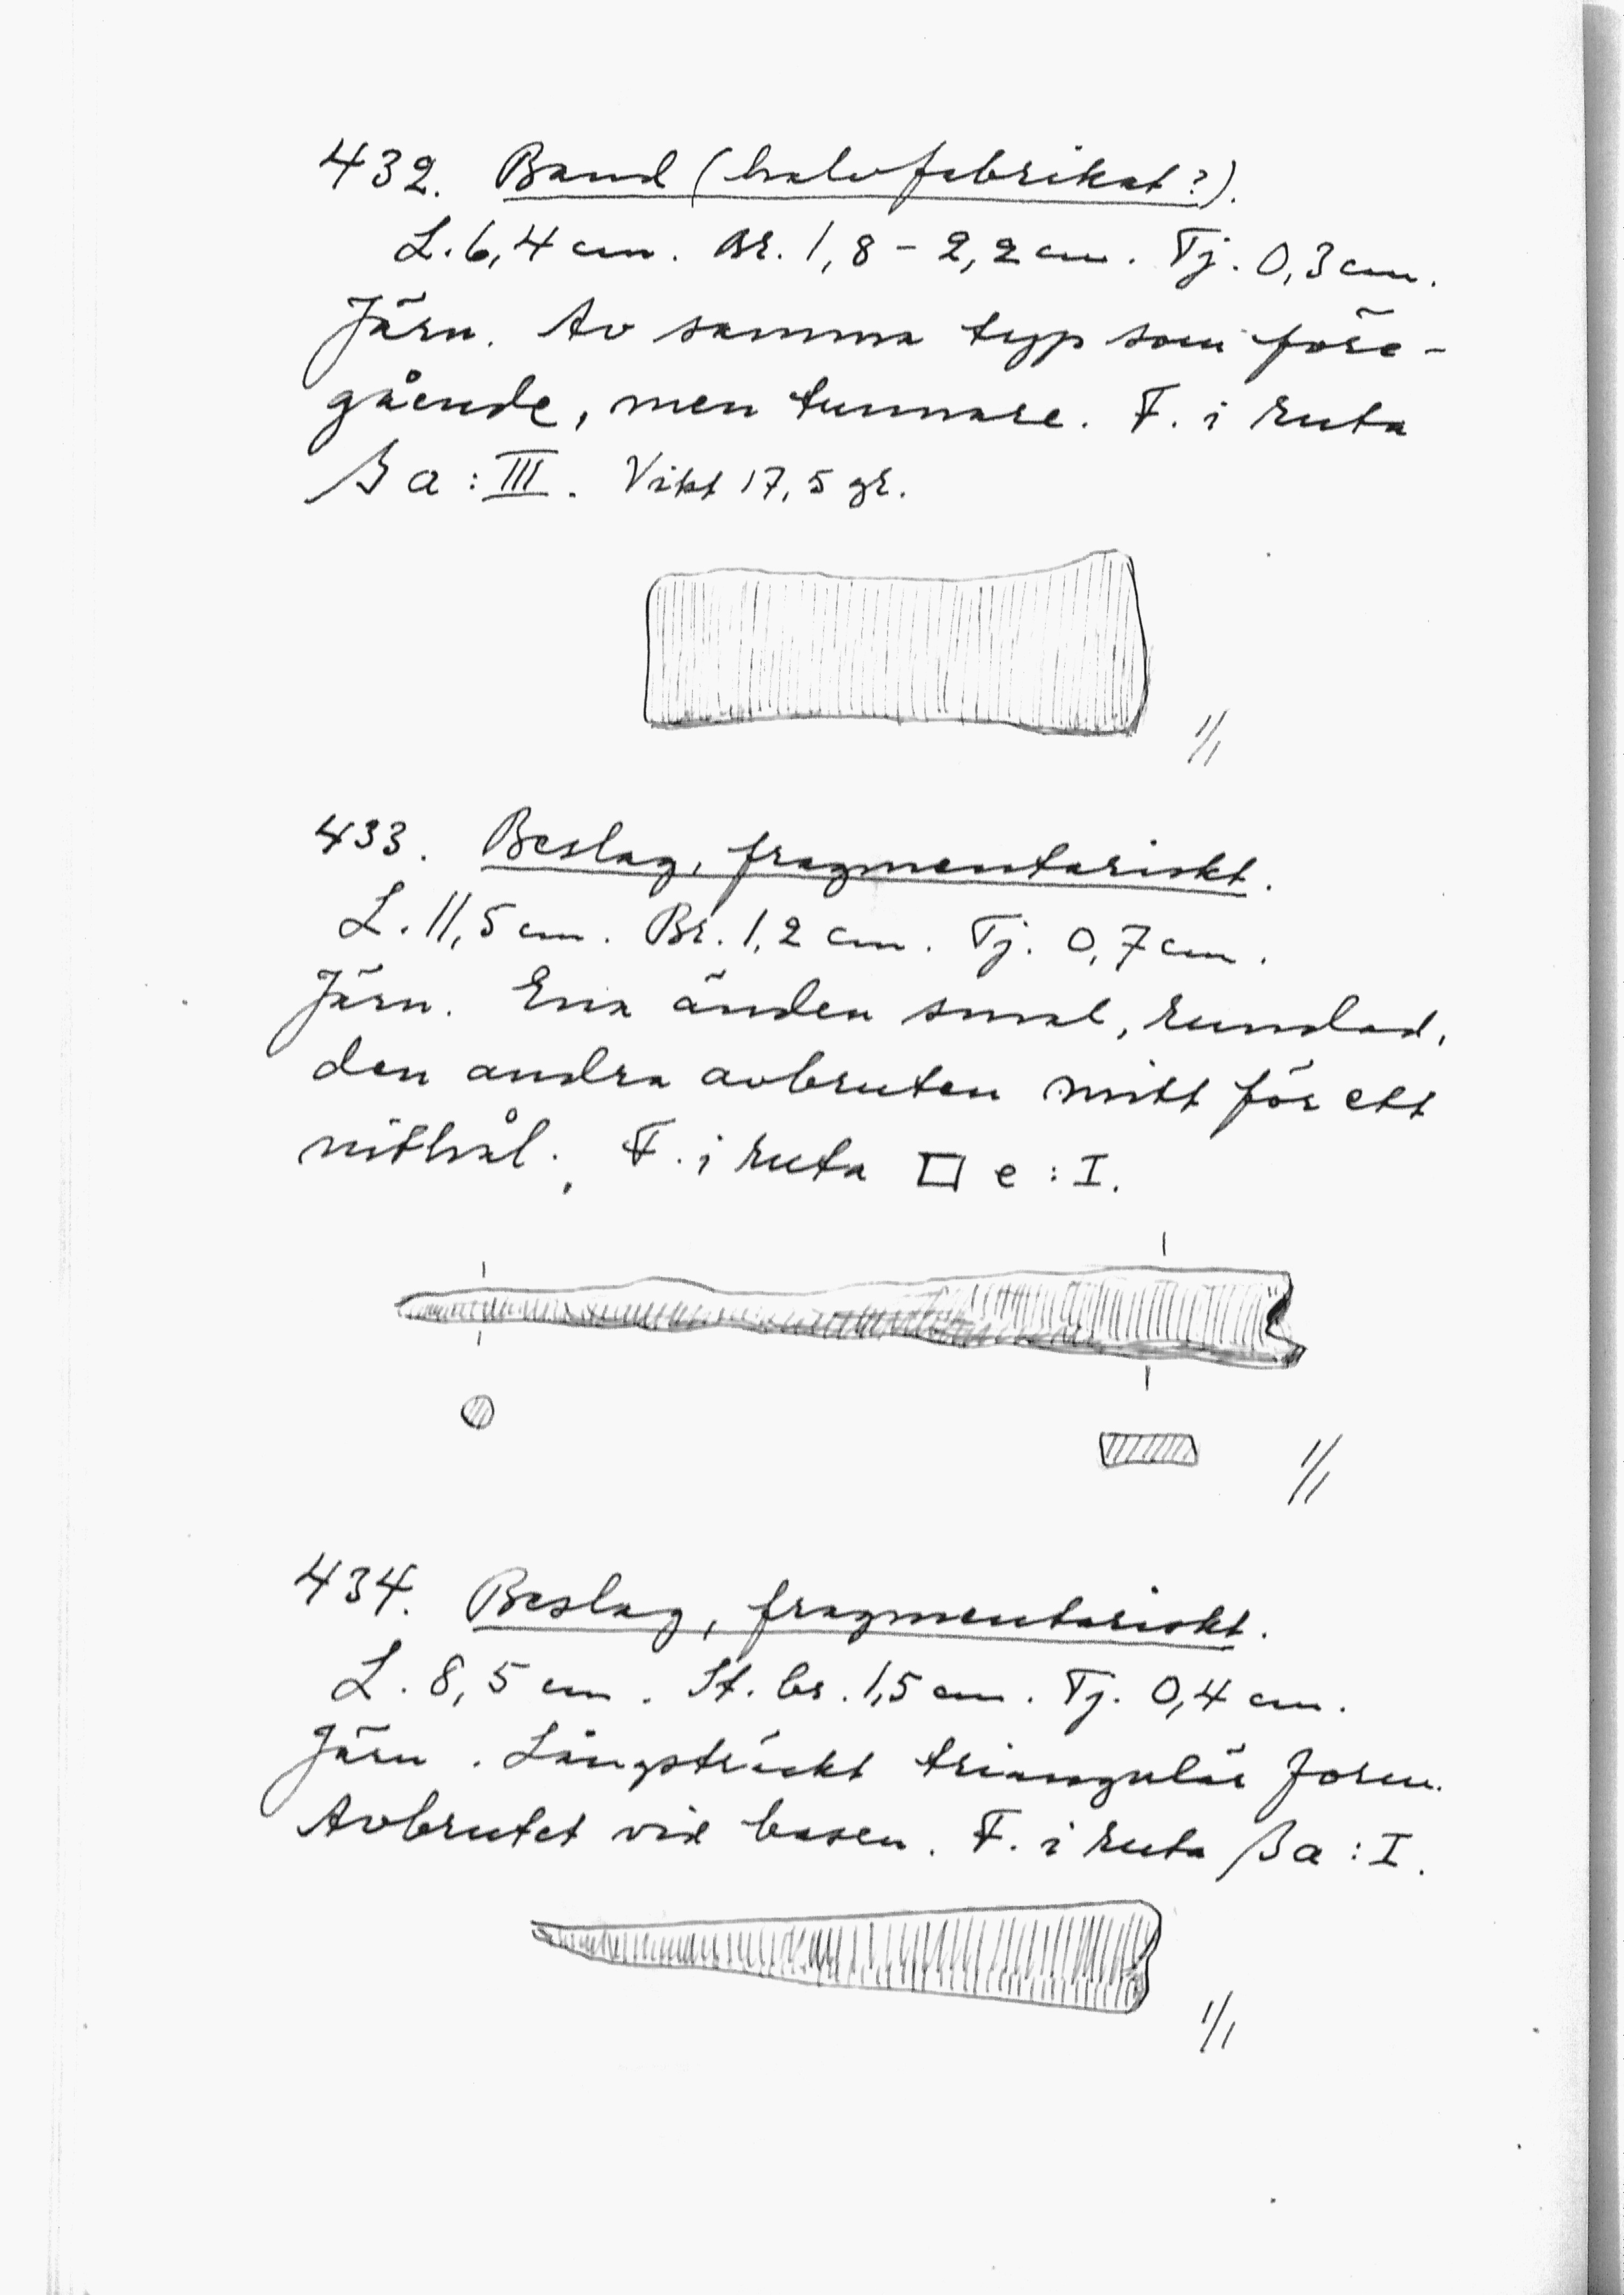 432. Band (halvfabrikat?).
L. 6,4 cm. Br. 1,8 – 2,2 cm. Tj. 0,3 cm.
Järn. Av samma typ som före-
gående, men tunnare. F. i ruta
β a : III. Vikt 17,5 gr.
1/1
433. Beslag, fragmentariskt.
L. 11,5 cm. Br. 1,2 cm. Tj. 0,7 cm.
Järn. Ena änden smal, rundad,
den andra avbruten mitt för ett
nithål. F. i ruta □ e : I.
1/1
434. Beslag, fragmentariskt.
L. 8,5 cm. St. br. 1,5 cm. Tj. 0,4 cm.
Järn. Långsträckt triangulär form.
Avbrutet vid basen. F. i ruta β a : I.
1/1